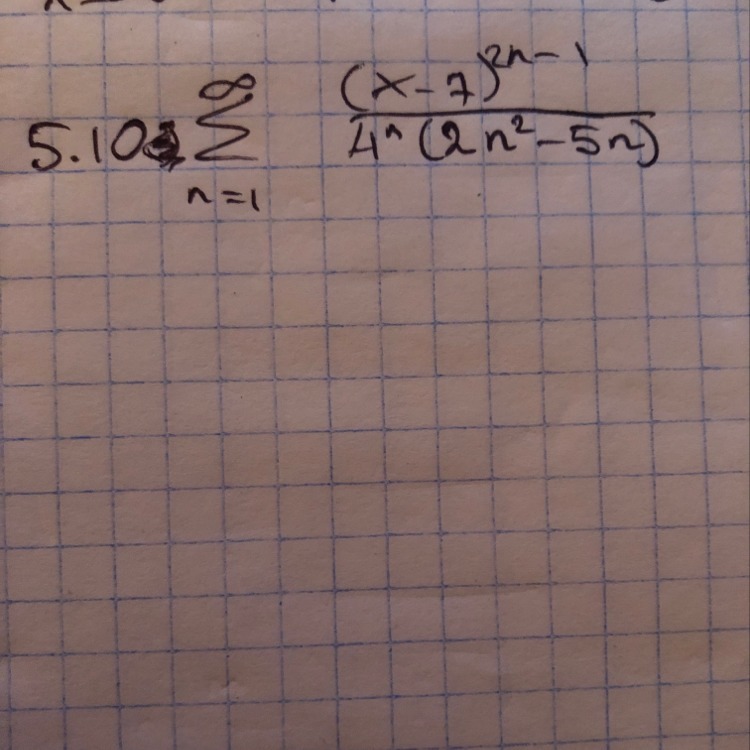 5.10 ∞ ∑ n=1 (x-7)^{2n-1} / 4^n (2n²-5n)